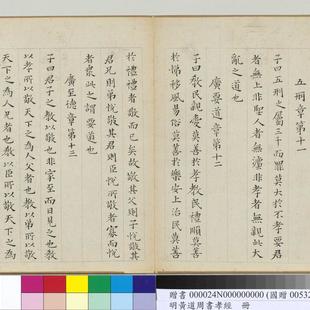 五刑章第十一
子曰五刑之屬三千而罪莫大於不孝要君
者無上非聖人者無灋非孝者無親此大
亂之道也
廣要道章第十二
子曰教民親愛莫善於孝教民禮順莫善
於悌移風易俗莫善於樂安上治民莫善
於禮禮者敬而已矣故敬其父則子悅敬其
君兄則弟悅敬其君則臣悅所敬者寡而悅
者眾此之謂要道也
廣至德章第十三
子曰君子之教以孝也非家至而日見之也教
以孝所以敬天下之為人父者也教以弟所以敬
天下之為人兄者也教以臣所以敬天下之為
贈書 000024N000000000 (國贈 00532
明黃道周書孝經 冊